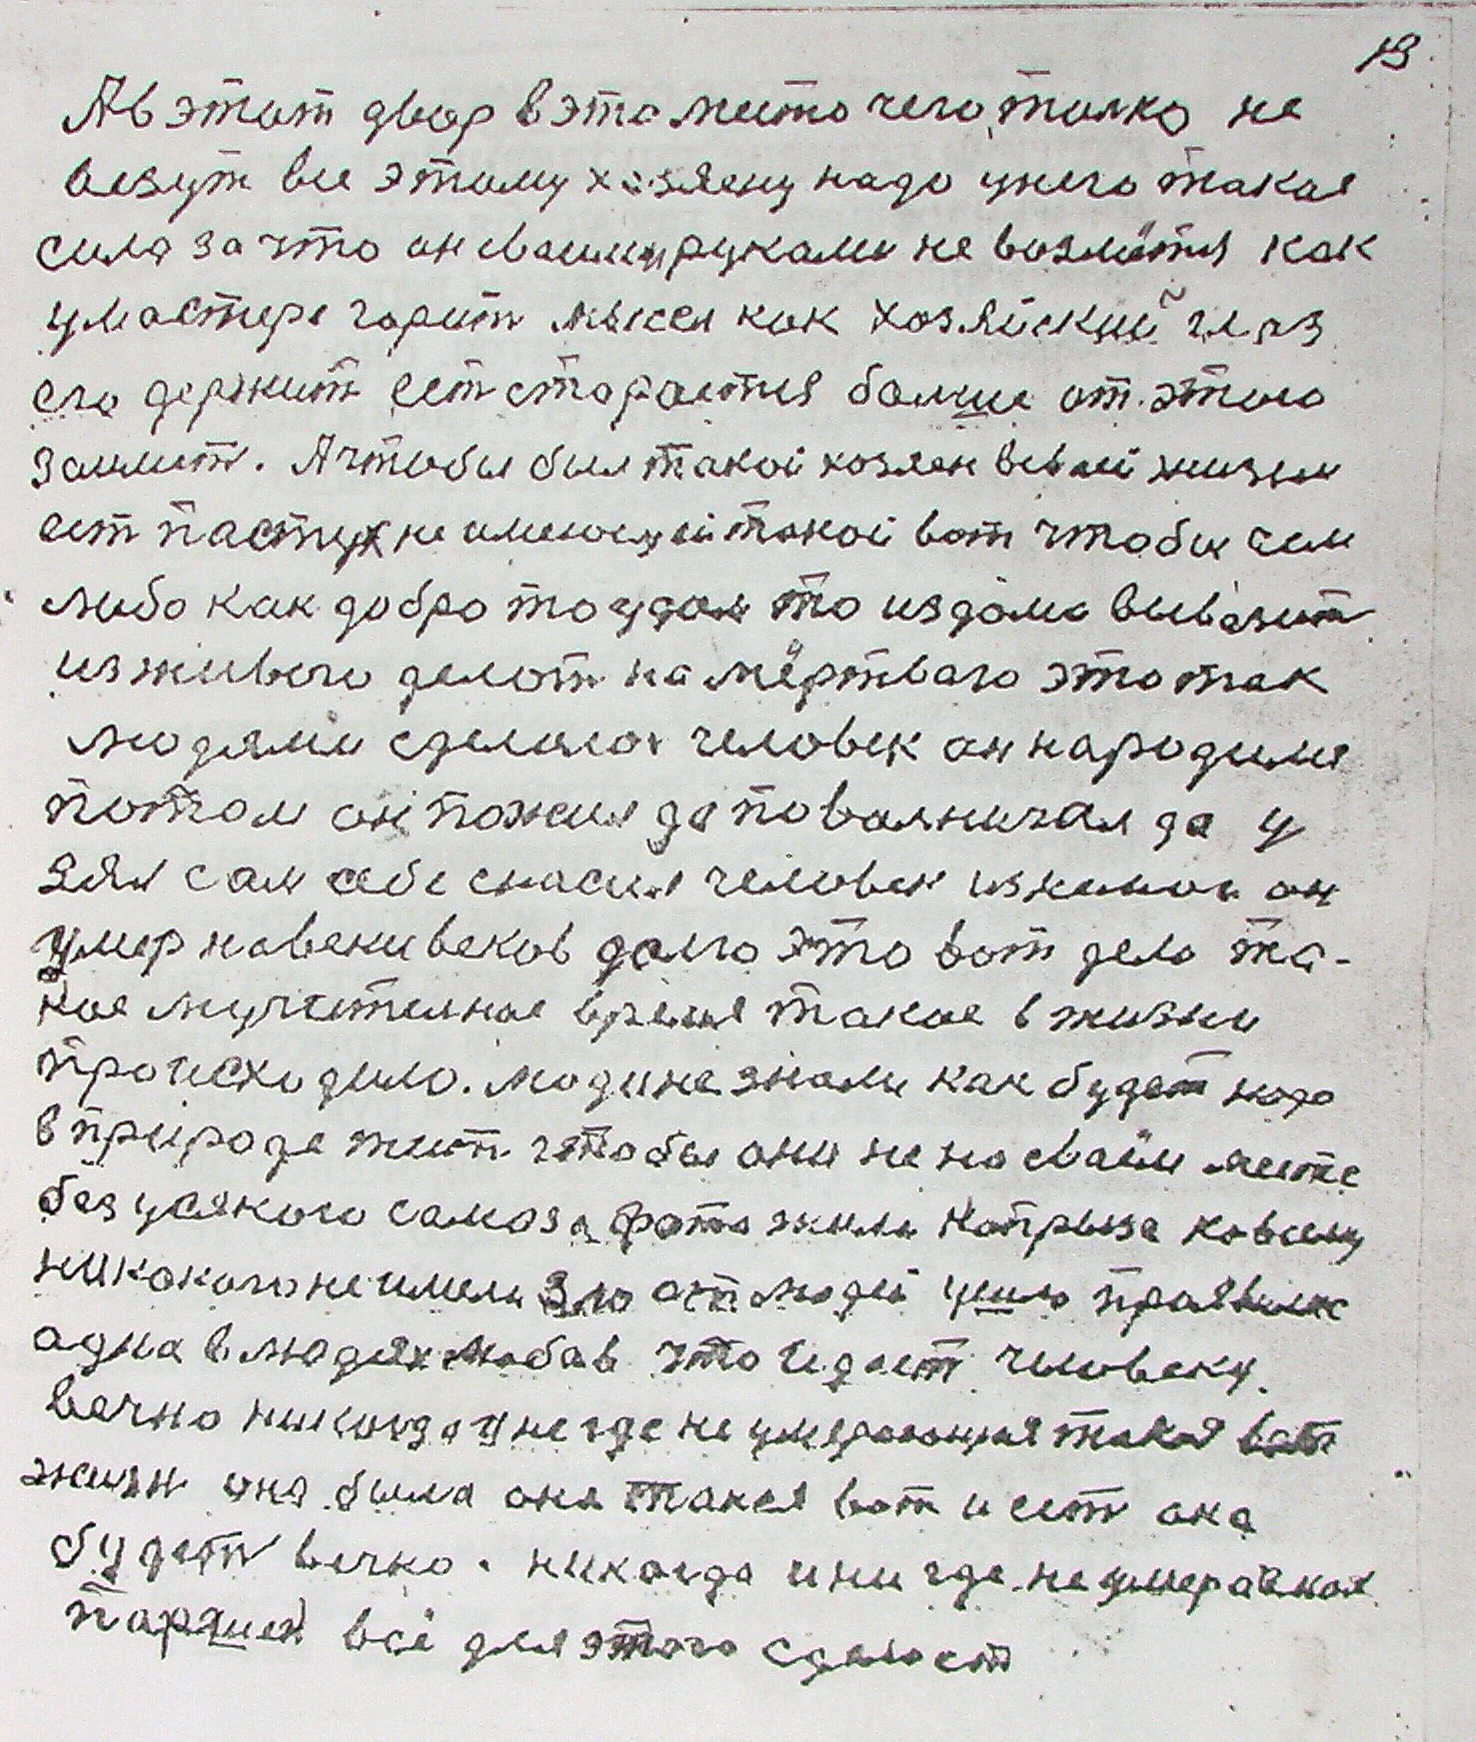 19
Ав этот двор в это место чего, толко не
везут все этому хозяену надо унего такае
сила за что он сваими руками не возмётся как
умастера горит мысел как хозяйский глаз
его держит ест старается болше от этого
заимет. А чтобы был такой хозяен всвоей жизни
ест пастух не имеющей такой вот чтобы чем
либо как добро то из дома вывезит
изживого делот на мёртваго это так
людями сделалос человек он народился
потом он пожил да поволничал да у
зял сам себе человек он
умер навекивеков долго это вот дело та-
кое мучителное время такое в жизни
происходило. людине знали как будет надо
в природе жит чтобы они не на сваём месте
без усякого самоза жили Ковсему
никокогоне имели Зло от людей ушло
адна в людях любов что идает человеку.
вечно никогда инегде не умерающия такая вот
жизн она была она такая вот и ест она
будет вечно. никогда инигде не
паршек всё для этого сделает